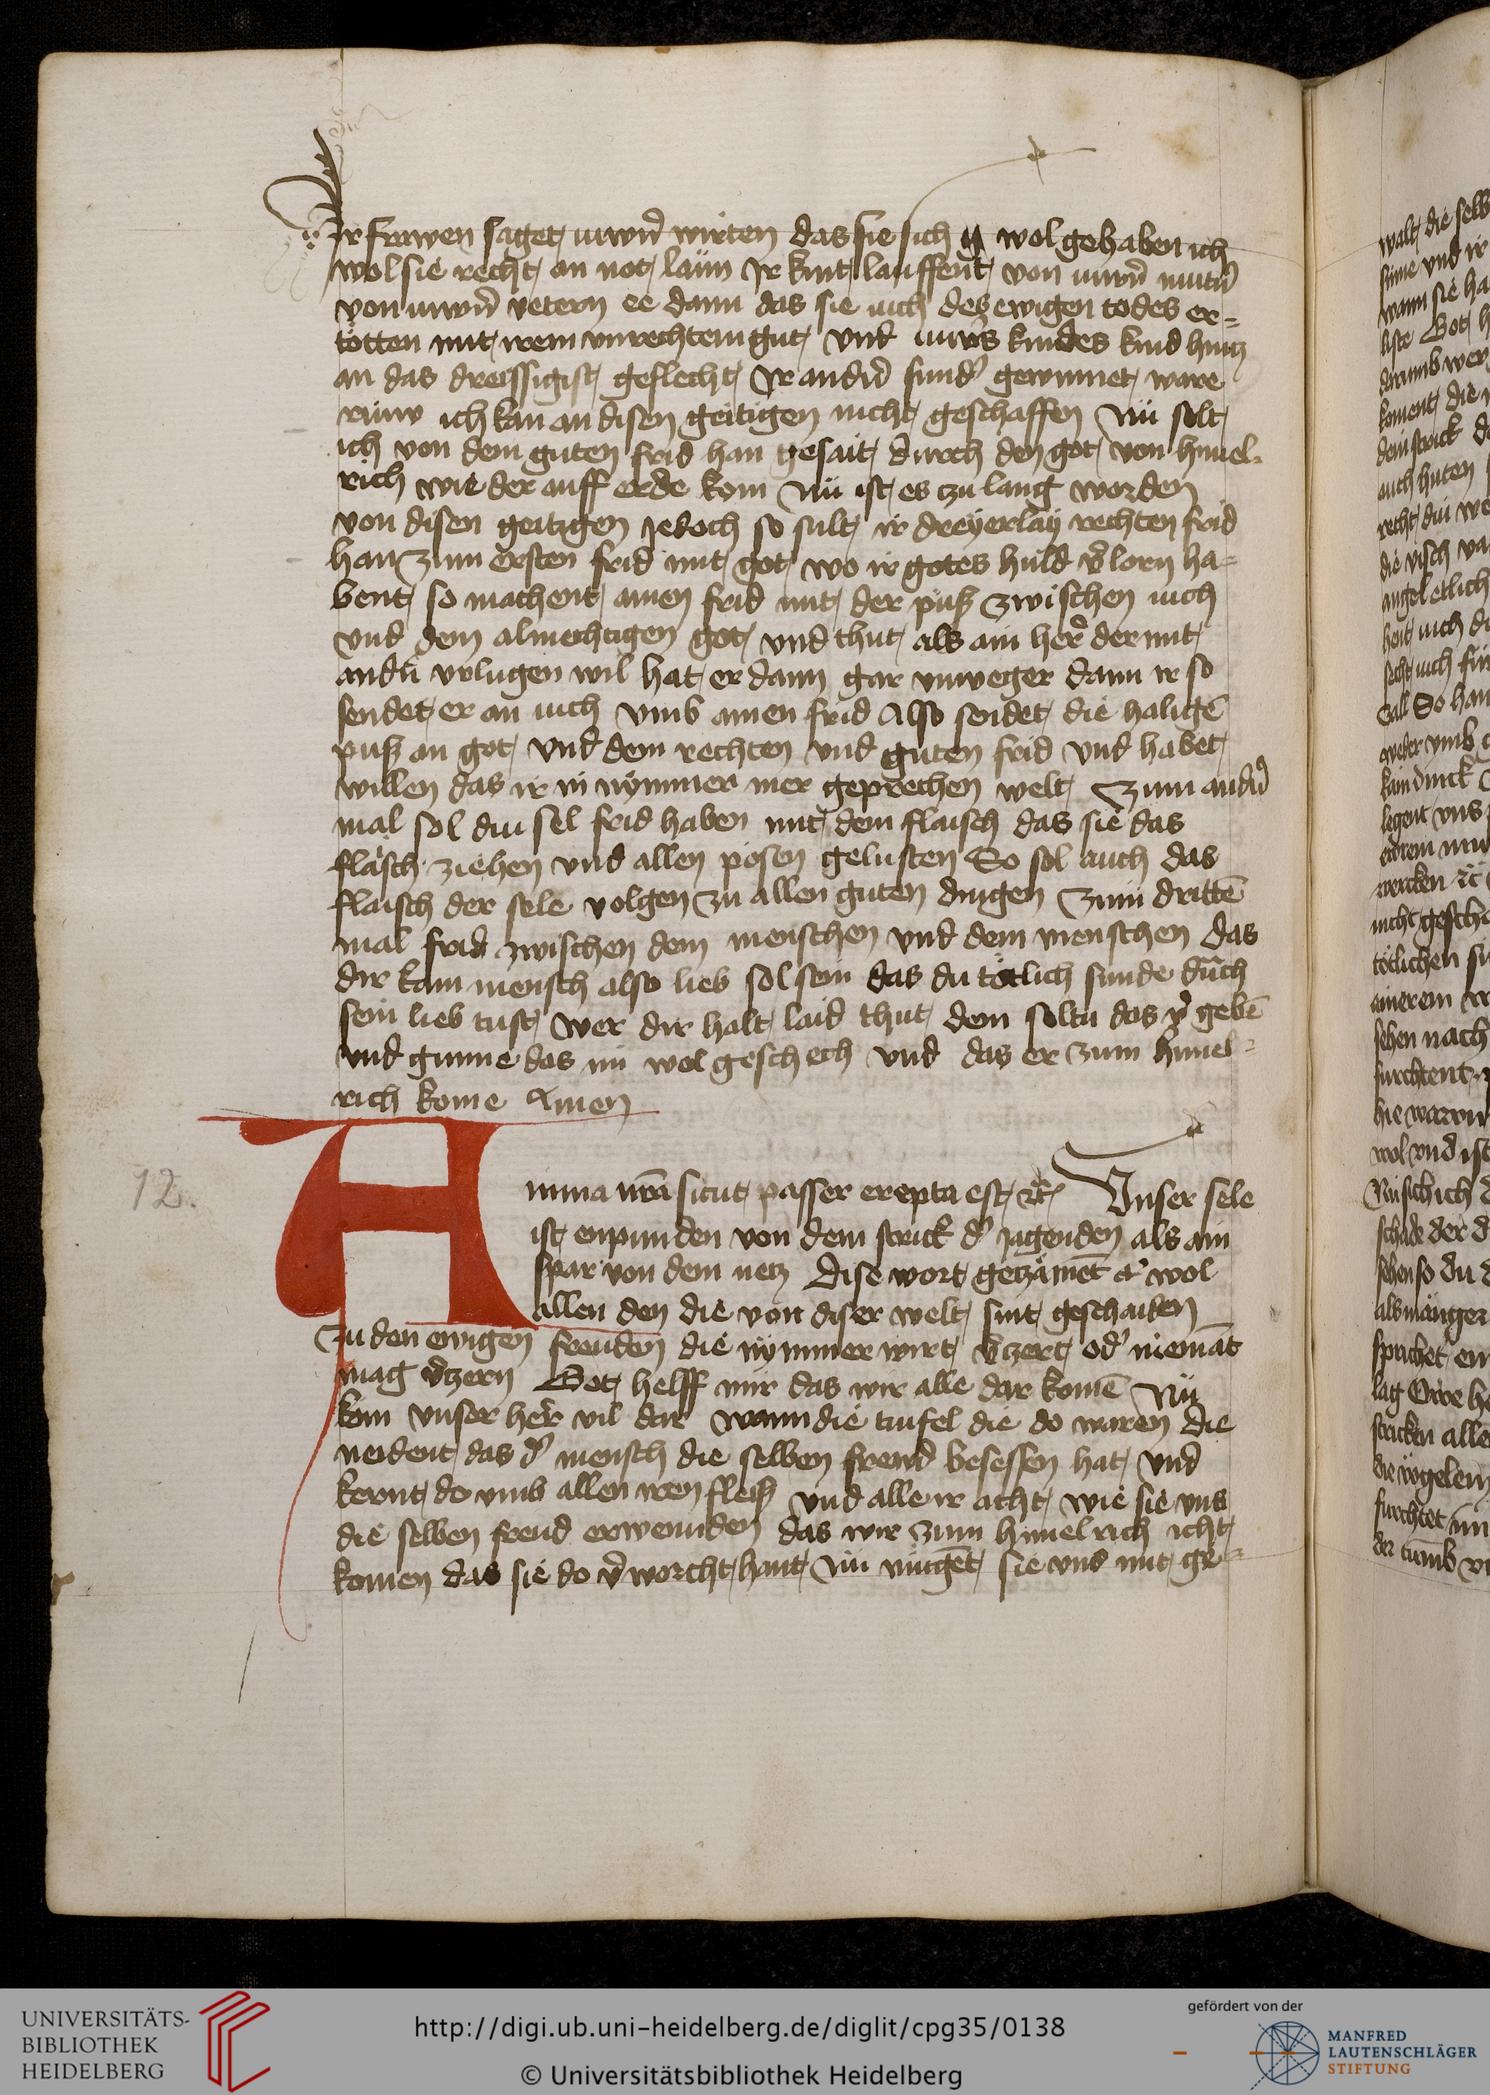 Ir frawen saget iuwrn wirten das sie sich wol gehaben ich
wol sie recht an not laun Ir kint lauffent von iuwrn mutrn
von iuwrn vetern ee dann das sie iuch des ewigen todes er=
totten mit irem vnrechtem gut vnd iuwrs kindes kind hintz
an das dreissigist geslecht Ir andrn sundr gewinnet ware
ruiw ich kan an disen geitigen nicht geschaffen Nu solt
ich von dem guten frid han gesait durch den got von himel=
rich wie der auff erde kom Nu ist es tzu lang worden
von disen geitigen Jedoch so sult ir dreyerlay rechten frid
han Zum ersten frid mit got wo ir gotes huld vrlorn ha=
bent so machent ainen frid mit der pusz zwischen iuch
vnd dem almechtigen got vnd thut als ain herr der mit
andrn vrlugen wil hat er dann gar vnweger dann ir so
sendet er an iuch vmb ainen frid Also sendet die hailigē
pusz an got vnd dem rechten vnd guten frid vnd habet
willen das ir in nymmer mer geprechen welt Zum andrn
mal sol diu sel frid haben mit dem flaisch das sie das
flaisch ziehen vnd allen posen gelusten So sol auch das
flaisch der sele volgen zu allen guten dingen Zum drittē
mal frid zwischen dem menschen vnd dem menschen das
dir kain mensch also lieb sol sein das du totlich sunde durch
sein lieb tust wer dir halt laid thut dem soltu das vrgebē
vnd gunne das im wol geschech vnd das er zum himel=
rich kome Amen
12.
Anima nr̄a sicut passer erepta est etc Vnser sele
ist enpunden von dem strick dr jagenden als ain
spar von dem netz Dise wort getzāment wol
allen den die von diser welt sint geschaiden
zu den ewigen freuden die nymmer wirt vrzert odr niemāt
mag vrzern Got helff mir das wir alle dar komē Nu
kom vnser herr vil dar wann die tiufel die do waren die
neident das dr mensch die selben frewd besessen hat vnd
kernt do vmb allen iren fleisz vnd alle ir acht wie sie vns
die selben freud erwennden das wir zum himelrich icht
komen das sie do vrworcht hant Nu mugēt sie vns mit ge=
UNIVERSITÄTS-
BIBLIOTHEK
HEIDELBERG
http://digi.ub.uni-heidelberg.de/diglit/cpg35/0138
© Universitätsbibliothek Heidelberg
gefördert von der
MANFRED
LAUTENSCHLÄGER
STIFTUNG